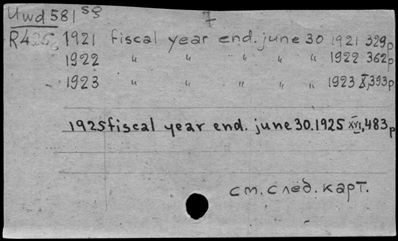 Uwd 581 58
7
R425, 1921 fiscal year end. june 30 1921 329p
1922 " " " " " 1922 362p
1923 " " " " " 1923 X,393p
1925 fiscal year end. june 30.1925 XVI,483p
см. след. карт.